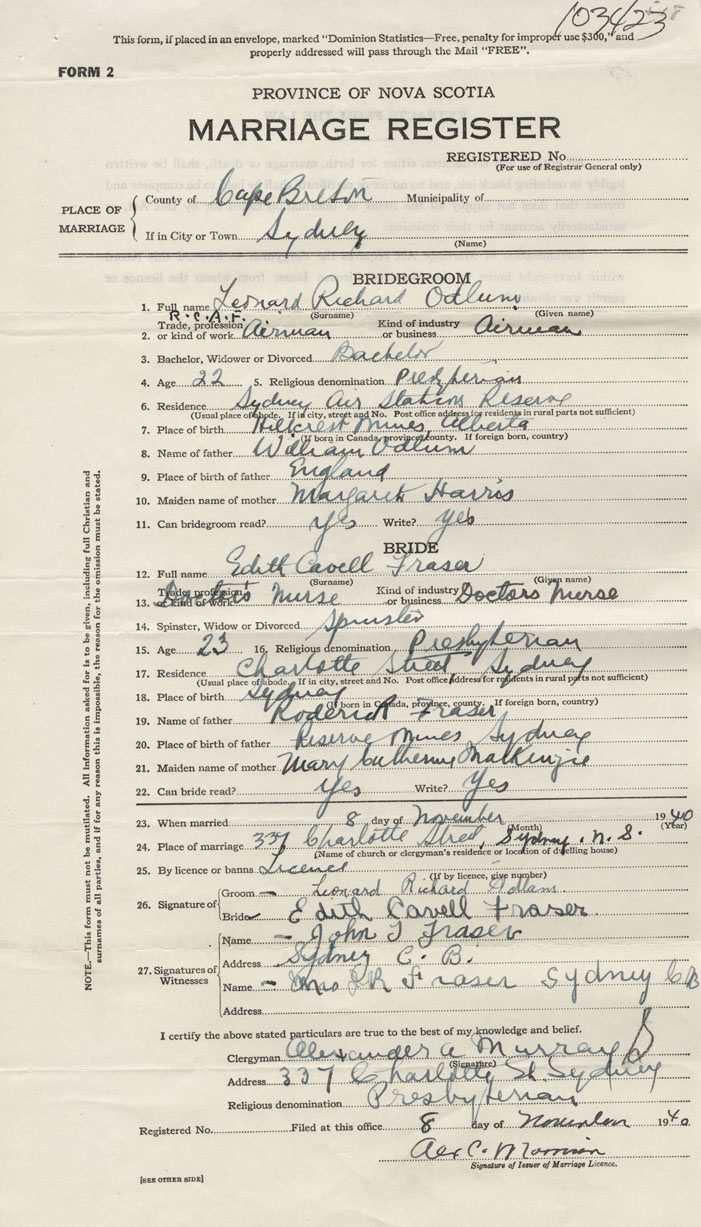 103423
This form, if placed in an envelope, marked "Dominion Statistics—Free, penalty for improper use $300," and
properly addressed will pass through the Mail "FREE".
FORM 2
PROVINCE OF NOVA SCOTIA
MARRIAGE REGISTER
REGISTERED No.
(For use of Registrar General only)
PLACE OF MARRIAGE
County of Cape Breton Municipality of
If in City or Town Sydney
(Name)
BRIDEGROOM
1. Full name Leonard Richard Odlum
(Surname) (Given name)
R.C.A.F.
2. Trade, profession or kind of work Airman Kind of industry or business Airman
3. Bachelor, Widower or Divorced Bachelor
4. Age 22 5. Religious denomination Presbyterian
6. Residence Sydney Air Station Reserve
(Usual place of abode. If in city, street and No. Post office address for residents in rural parts not sufficient)
7. Place of birth Hillcrest Mines, Alberta
(If born in Canada, province, county. If foreign born, country)
8. Name of father William Odlum
9. Place of birth of father England
10. Maiden name of mother Margaret Harris
11. Can bridegroom read? yes Write? yes
BRIDE
12. Full name Edith Cavell Fraser
(Surname) (Given name)
13. Trade, profession or kind of work Doctor's Nurse Kind of industry or business Doctors Nurse
14. Spinster, Widow or Divorced Spinster
15. Age 23 16. Religious denomination Presbyterian
17. Residence Charlotte Street, Sydney
(Usual place of abode. If in city, street and No. Post office address for residents in rural parts not sufficient)
18. Place of birth Sydney
(If born in Canada, province, county. If foreign born, country)
19. Name of father Roderick Fraser
20. Place of birth of father Reserve Mines, Sydney
21. Maiden name of mother Mary Catherine MacKenzie
22. Can bride read? Yes Write? Yes
23. When married 8 day of November 1940
(Month) (Year)
24. Place of marriage 337 Charlotte Street, Sydney, N.S.
(Name of church or clergyman's residence or location of dwelling house)
25. By licence or banns Licence
(If by licence, give number)
26. Signature of
Groom — Leonard Richard Odlum
Bride Edith Cavell Fraser
27. Signatures of Witnesses
Name — John T Fraser
Address Sydney C. B.
Name — Mrs J R Fraser Sydney C B
Address
I certify the above stated particulars are true to the best of my knowledge and belief.
Clergyman Alexander A Murray
(Signature)
Address 337 Charlotte St. Sydney
Religious denomination Presbyterian
Registered No. Filed at this office 8 day of November 1940
Alex C. Morrison
Signature of Issuer of Marriage Licence.
[SEE OTHER SIDE]
NOTE.—This form must not be mutilated. All information asked for is to be given, including full Christian and
surnames of all parties, and if for any reason this is impossible, the reason for the omission must be stated.